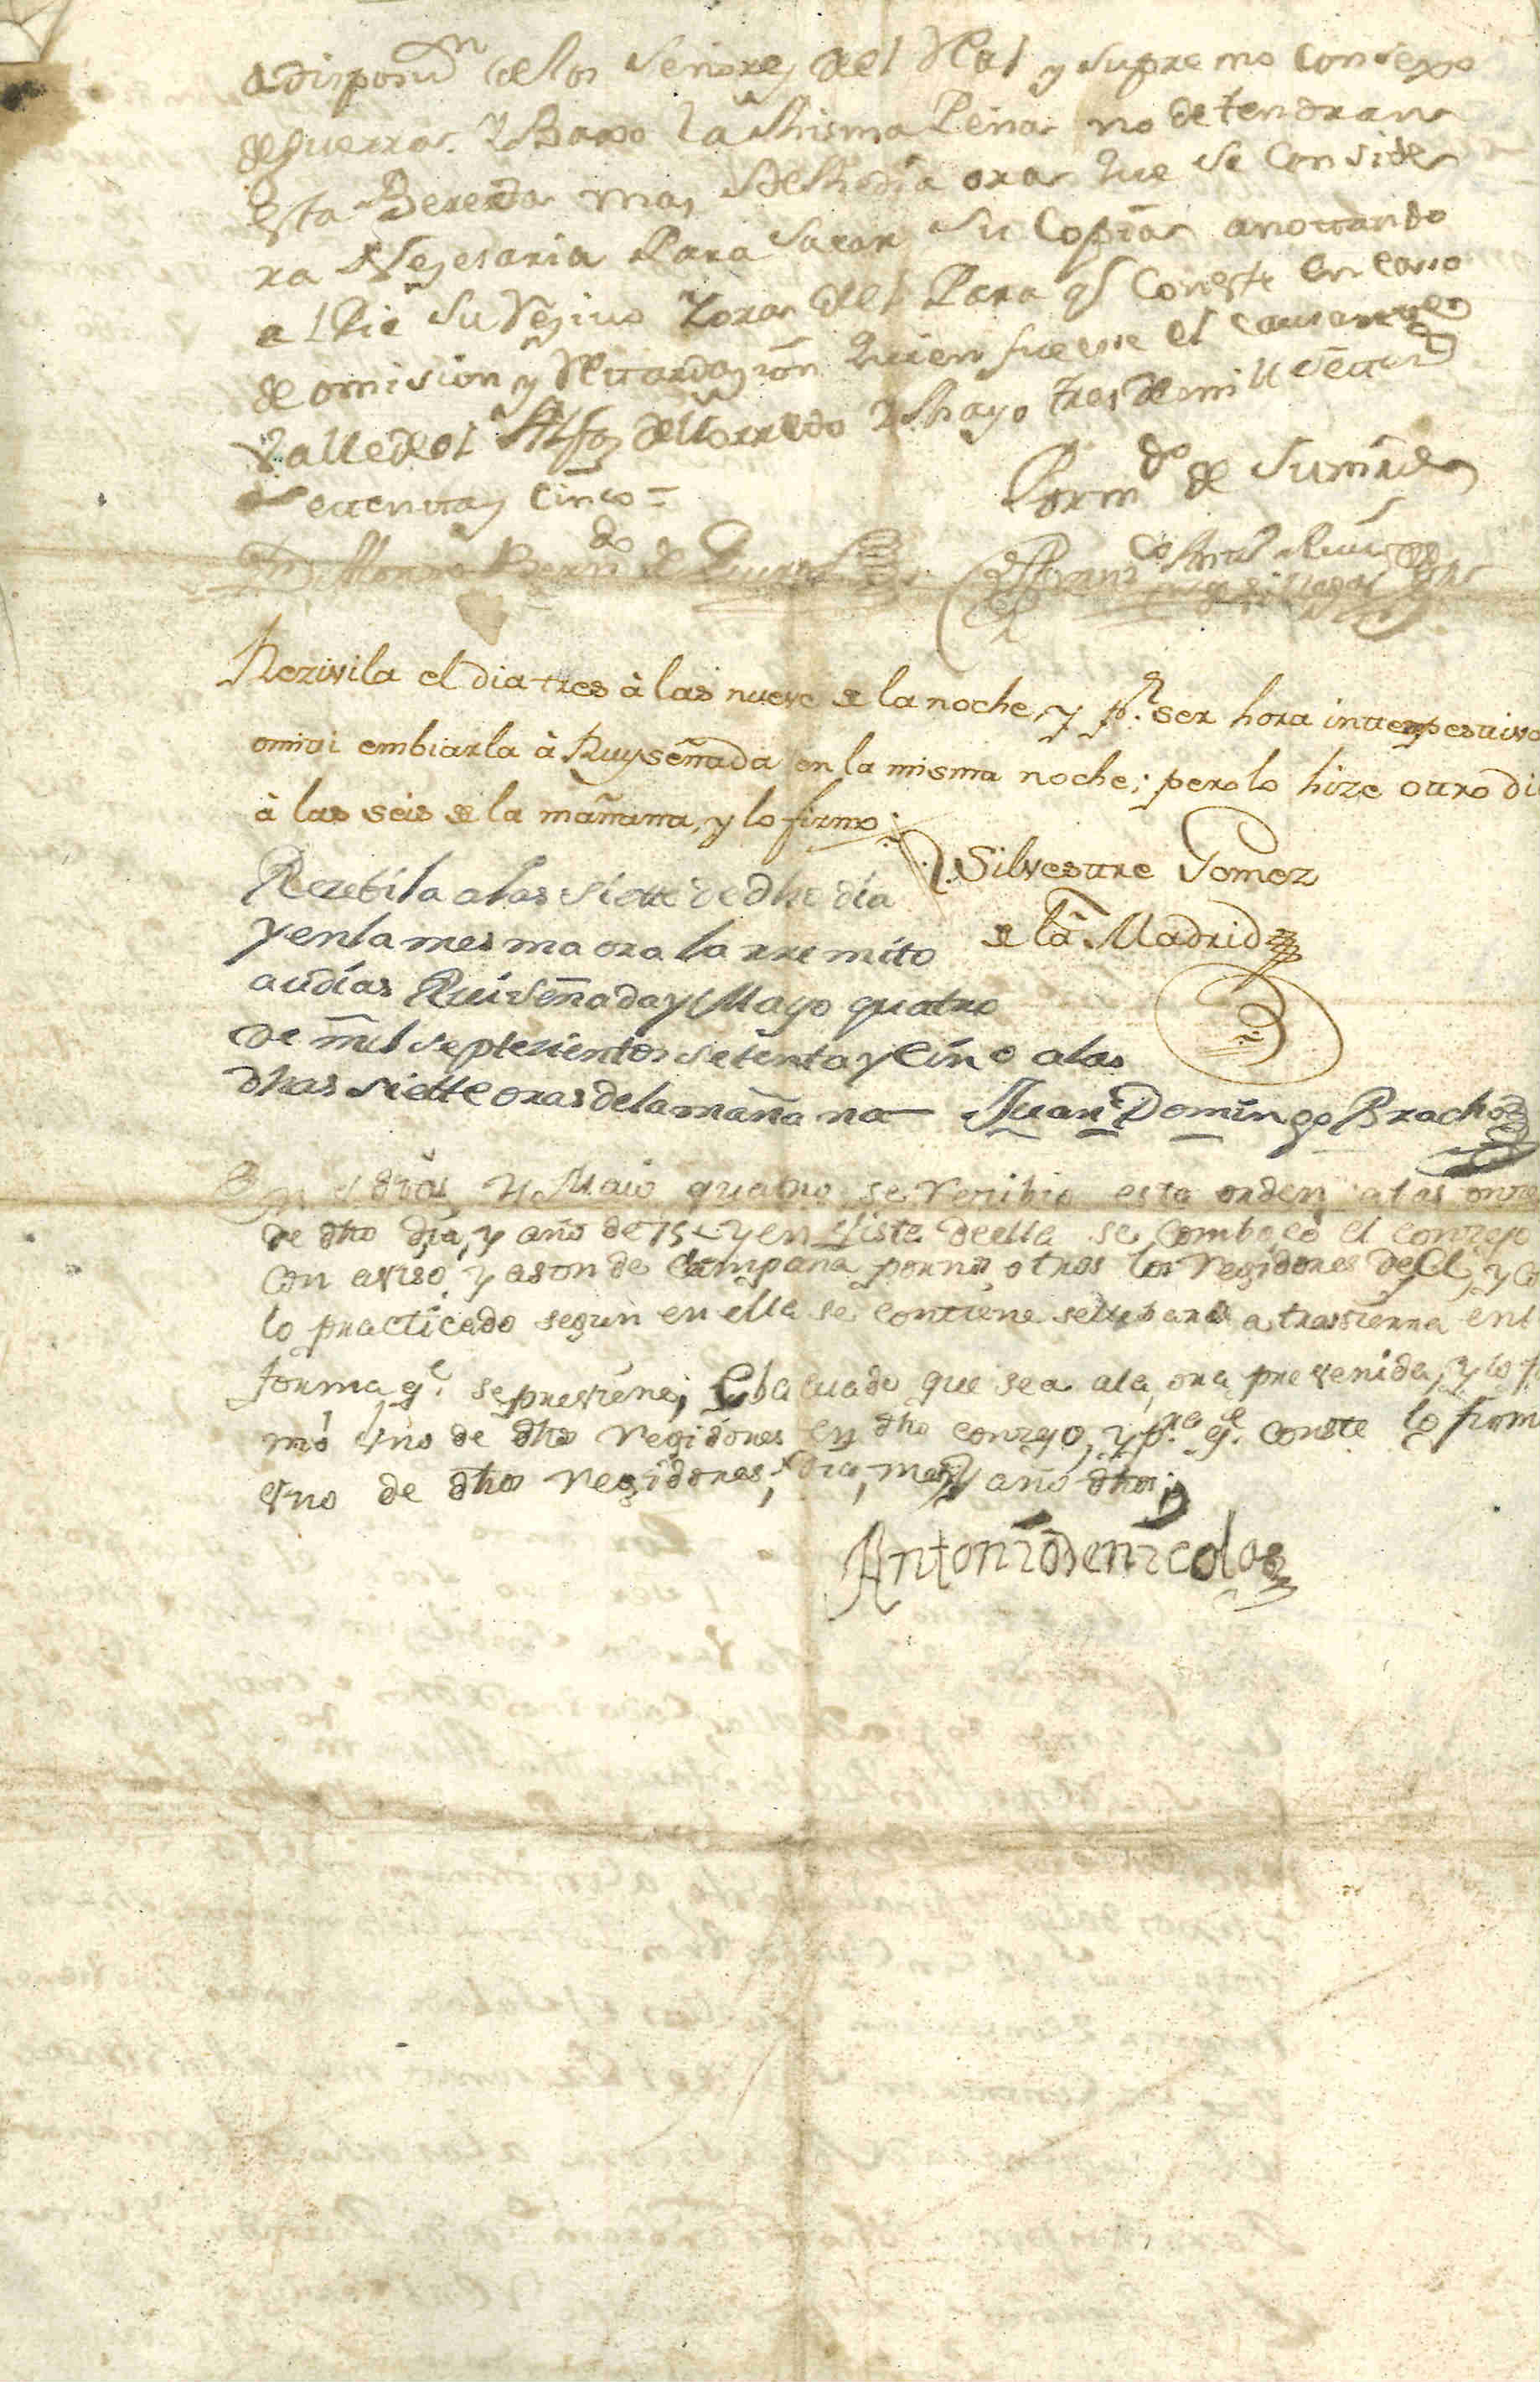 a disposin de los Señores del Rl y Supremo Consexo
de guerra. Y Baxo la Misma Pena no detendran
esta Bereda mas de Media ora que se Conside
ra Nezesaria Para Sacar Su Copia anottando
al Pie Su Rezivo Y ora del Para qe Conste en caso
de omision y Retardazion quien fuere el causante
Valle del Alfoz de Lloredo y Mayo tres de mill Settez
Settenttay Cinco =
Porm.do de Su mrd
Rezivila el dia tres à las nueve de la noche, y p.r ser hora intempestiva
omiti embiarla à Ruyseñada en la misma noche; pero lo hize otro di
à las seis de la mañana, y lo firmo;
Silvestre Gomez
de la Madrid
Rezebila a las siette de dho dia
y en la mesma ora la rremito
a udías Ruiseñada y Mayo quatro
de mil septecientos setenta y Cinco a las
dhas siette oras de la maña na — Juan Domingo Bracho
En udias y Maio quatro se rezibio esta orden a las onze
de dho dia, y año de 75 = y en Vista de ella se comboco el conzejo
con aviso, y a son de Campana por nos otros los Regidores del, y co
lo practicado segun en ella se contiene se llebara a trassierra en l
forma q.e se previene; Ebacuado que sea a la ora prevenida, y lo fi
mó Vno de dhos Regidores en dho conzejo, y p.ra q.e conste lo firm
Vno de dhos Regidores, dia, mes y año dhos;
Antonio de nicolas